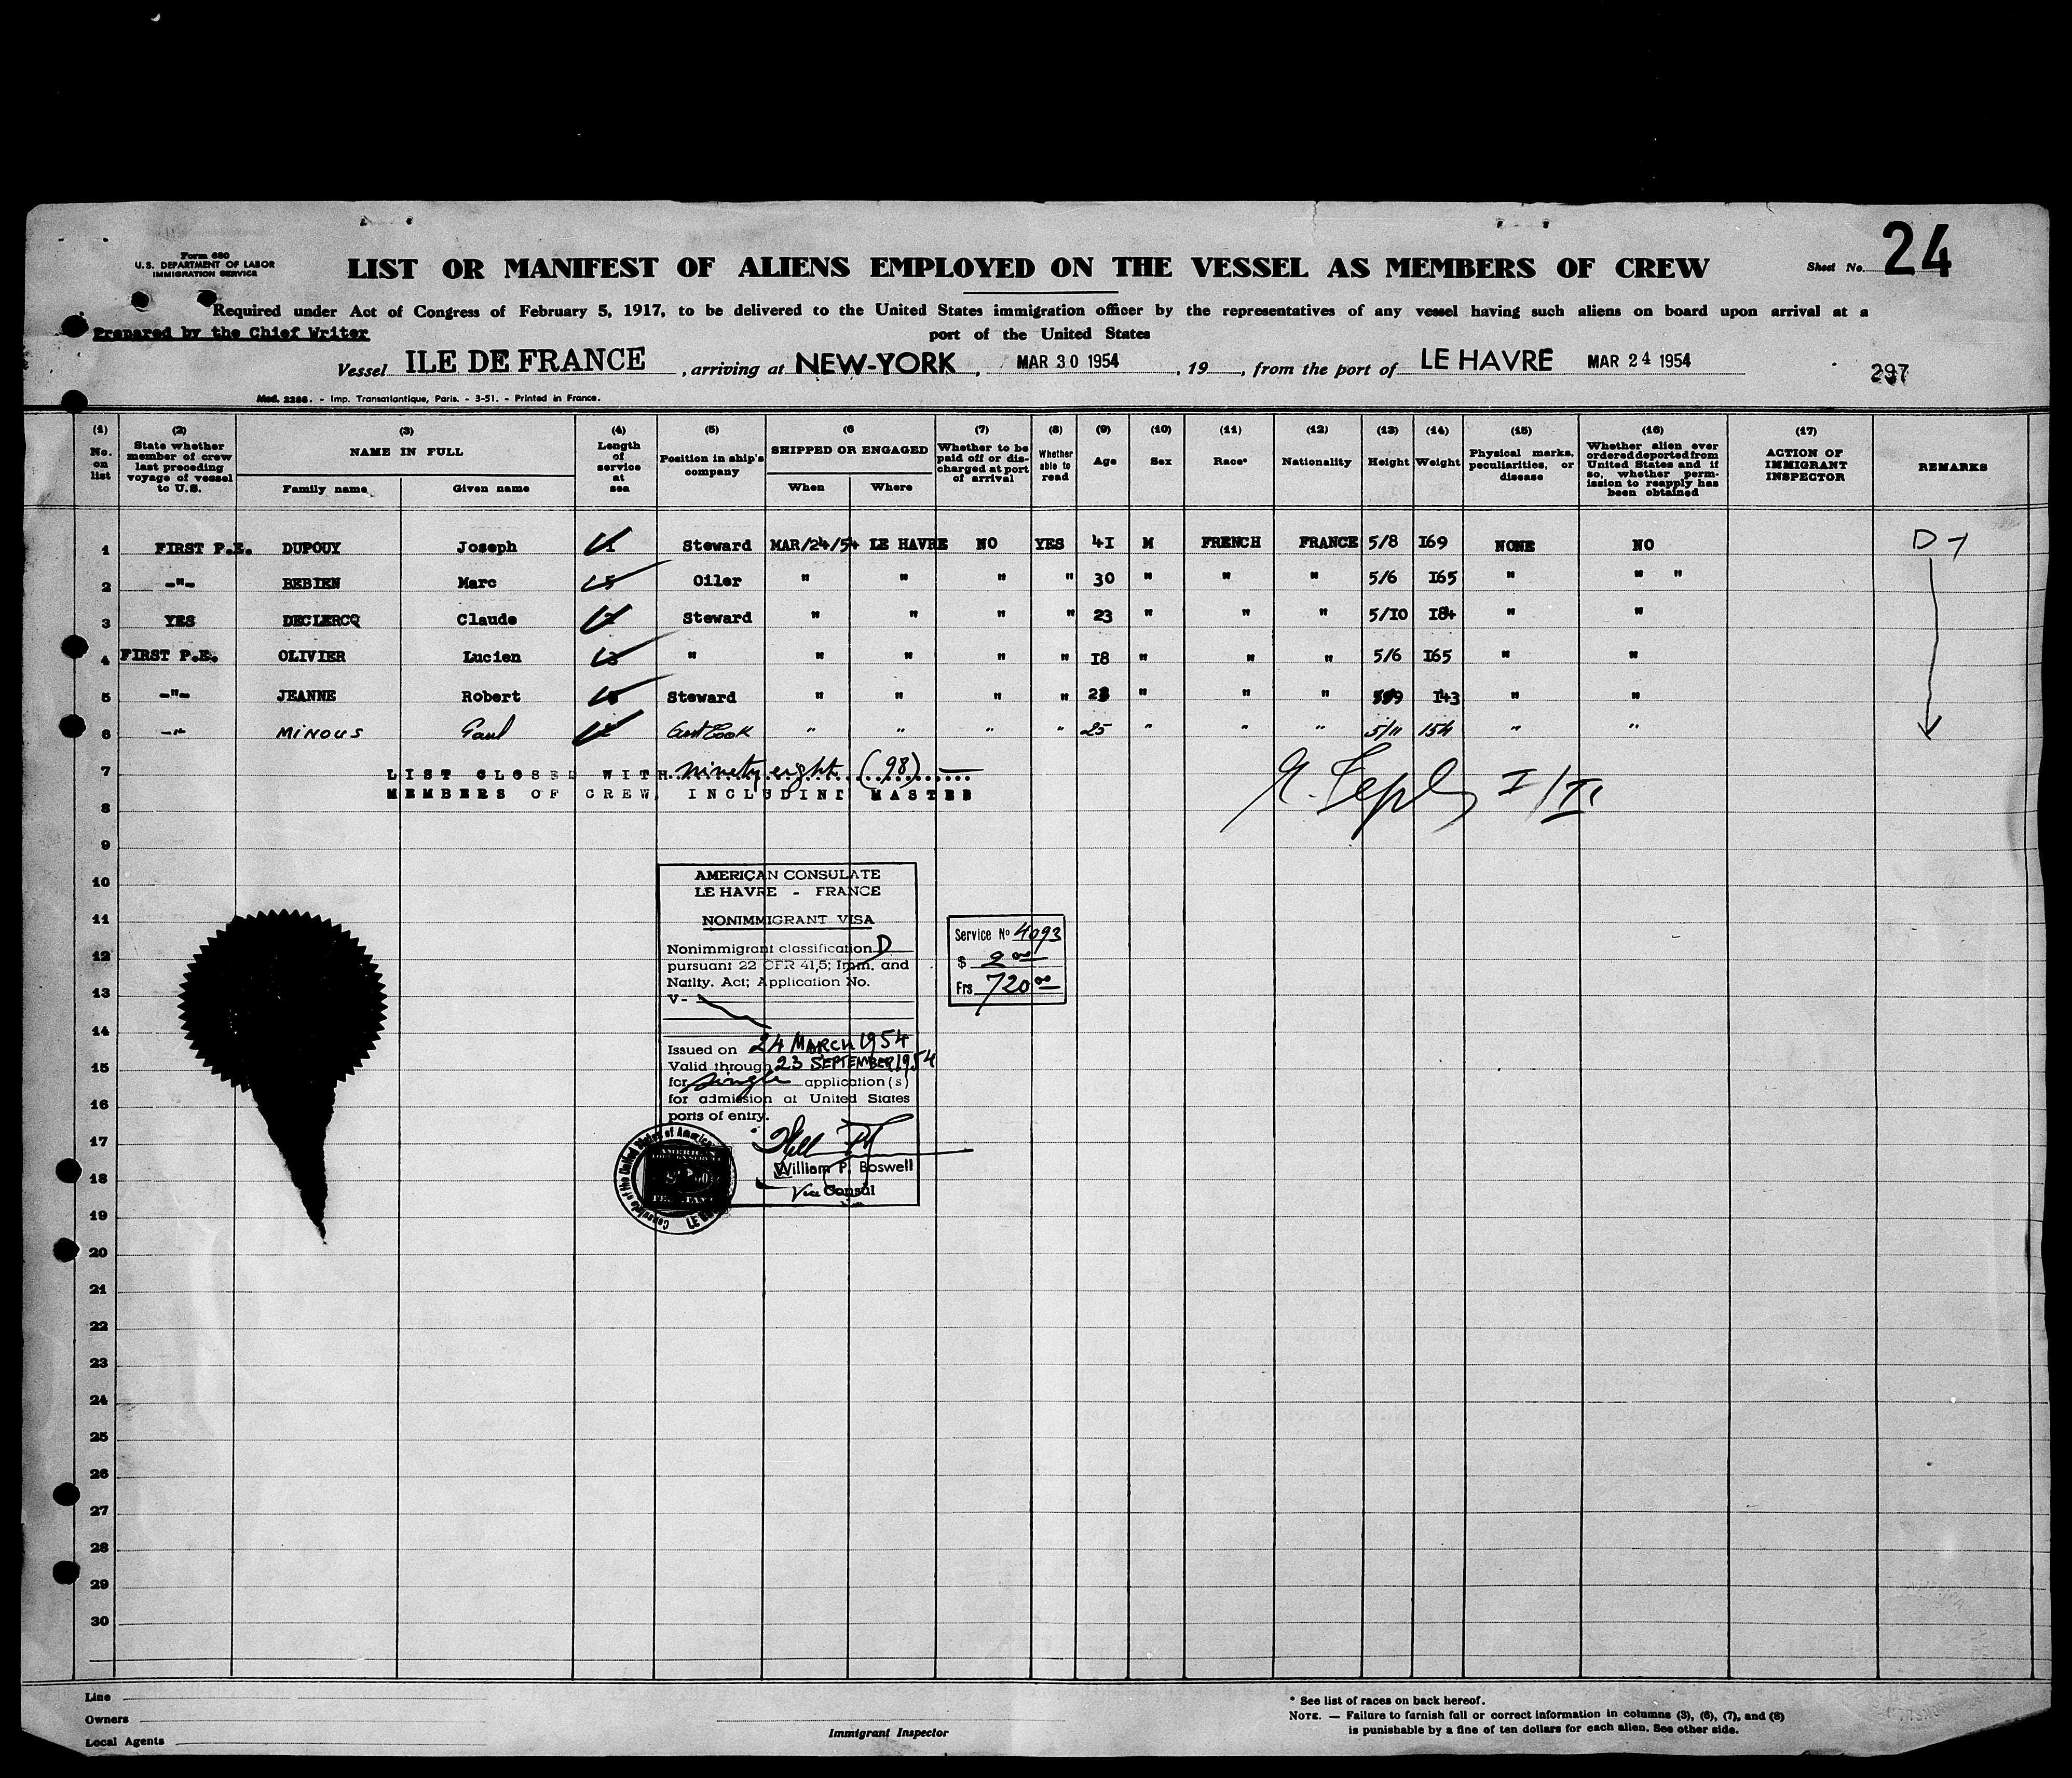 24
Form 680
U.S. DEPARTMENT OF LABOR
IMMIGRATION SERVICE
LIST OR MANIFEST OF ALIENS EMPLOYED ON THE VESSEL AS MEMBERS OF CREW
Sheet No.
Required under Act of Congress of February 5, 1917, to be delivered to the United States immigration officer by the representatives of any vessel having such aliens on board upon arrival at a
Prepared by the Chief Writer
port of the United States
Vessel ILE DE FRANCE, arriving at NEW-YORK, MAR 30 1954, 19, from the port of LE HAVRE MAR 24 1954
297
Mod. 2286. - Imp. Transatlantique, Paris. - 3-51. - Printed in France.
(1) No. on list
(2) State whether member of crew last preceding voyage of vessel to U.S.
(3) NAME IN FULL Family name Given name
(4) Length of service at sea
(5) Position in ship's company
(6 SHIPPED OR ENGAGED When Where
(7) Whether to be paid off or discharged at port of arrival
(8) Whether able to read
(9) Age
(10) Sex
(11) Race*
(12) Nationality
(13) Height
(14) Weight
(15) Physical marks, peculiarities, or disease
(16) Whether alien ever ordered deported from United States and if so, whether permission to reapply has been obtained
(17) ACTION OF IMMIGRANT INSPECTOR
REMARKS
1 FIRST P.E. DUPOUY Joseph Steward MAR/24/54 LE HAVRE NO YES 41 M FRENCH FRANCE 5/8 169 NONE NO D-1
2 -"- BEBIEN Marc Oiler " " " " 30 " " " 5/6 165 " " "
3 YES DECLERCQ Claude Steward " " " " 23 " " " 5/10 184 " "
4 FIRST P.E. OLIVIER Lucien " " " " " 18 " " " 5/6 165 " "
5 -"- JEANNE Robert Steward " " " " " " " 143 " "
6 -"- MINOUS Paul Cook " " " " 25 " " " 5/11 154 " "
7 LIST CLOSED WITH ninety eight (98)
MEMBERS OF CREW, INCLUDING MASTER
8
9
10
11
12
13
14
15
16
17
18
19
20
21
22
23
24
25
26
27
28
29
30
AMERICAN CONSULATE
LE HAVRE - FRANCE
NONIMMIGRANT VISA
Nonimmigrant classification D
pursuant 22 CFR 41,5; Imm. and
Natlty. Act; Application No.
V-
Issued on 24 MARCH 1954
Valid through 23 SEPTEMBER 1954
for single application(s)
for admission at United States
ports of entry.
William P. Boswell
Vice Consul
Service No 4093
$ 2 00
Frs 720 00
Line
Owners
Local Agents
Immigrant Inspector
* See list of races on back hereof.
NOTE. — Failure to furnish full or correct information in columns (3), (6), (7), and (8)
is punishable by a fine of ten dollars for each alien. See other side.